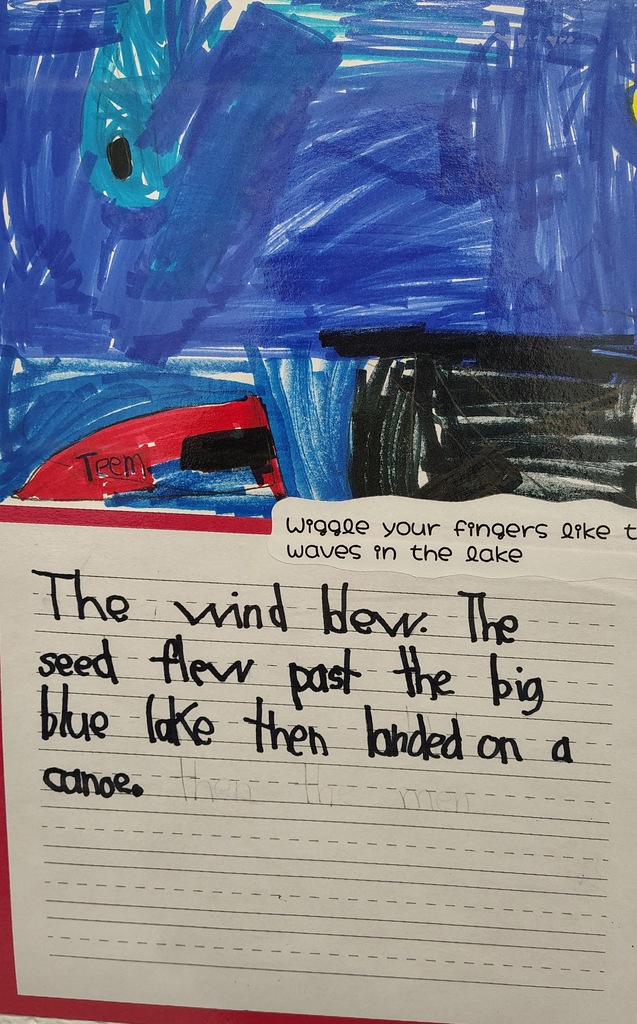 Teem
Wiggle your fingers like t
waves in the lake
The wind blew. The
seed flew past the big
blue lake then landed on a
canoe. then the men